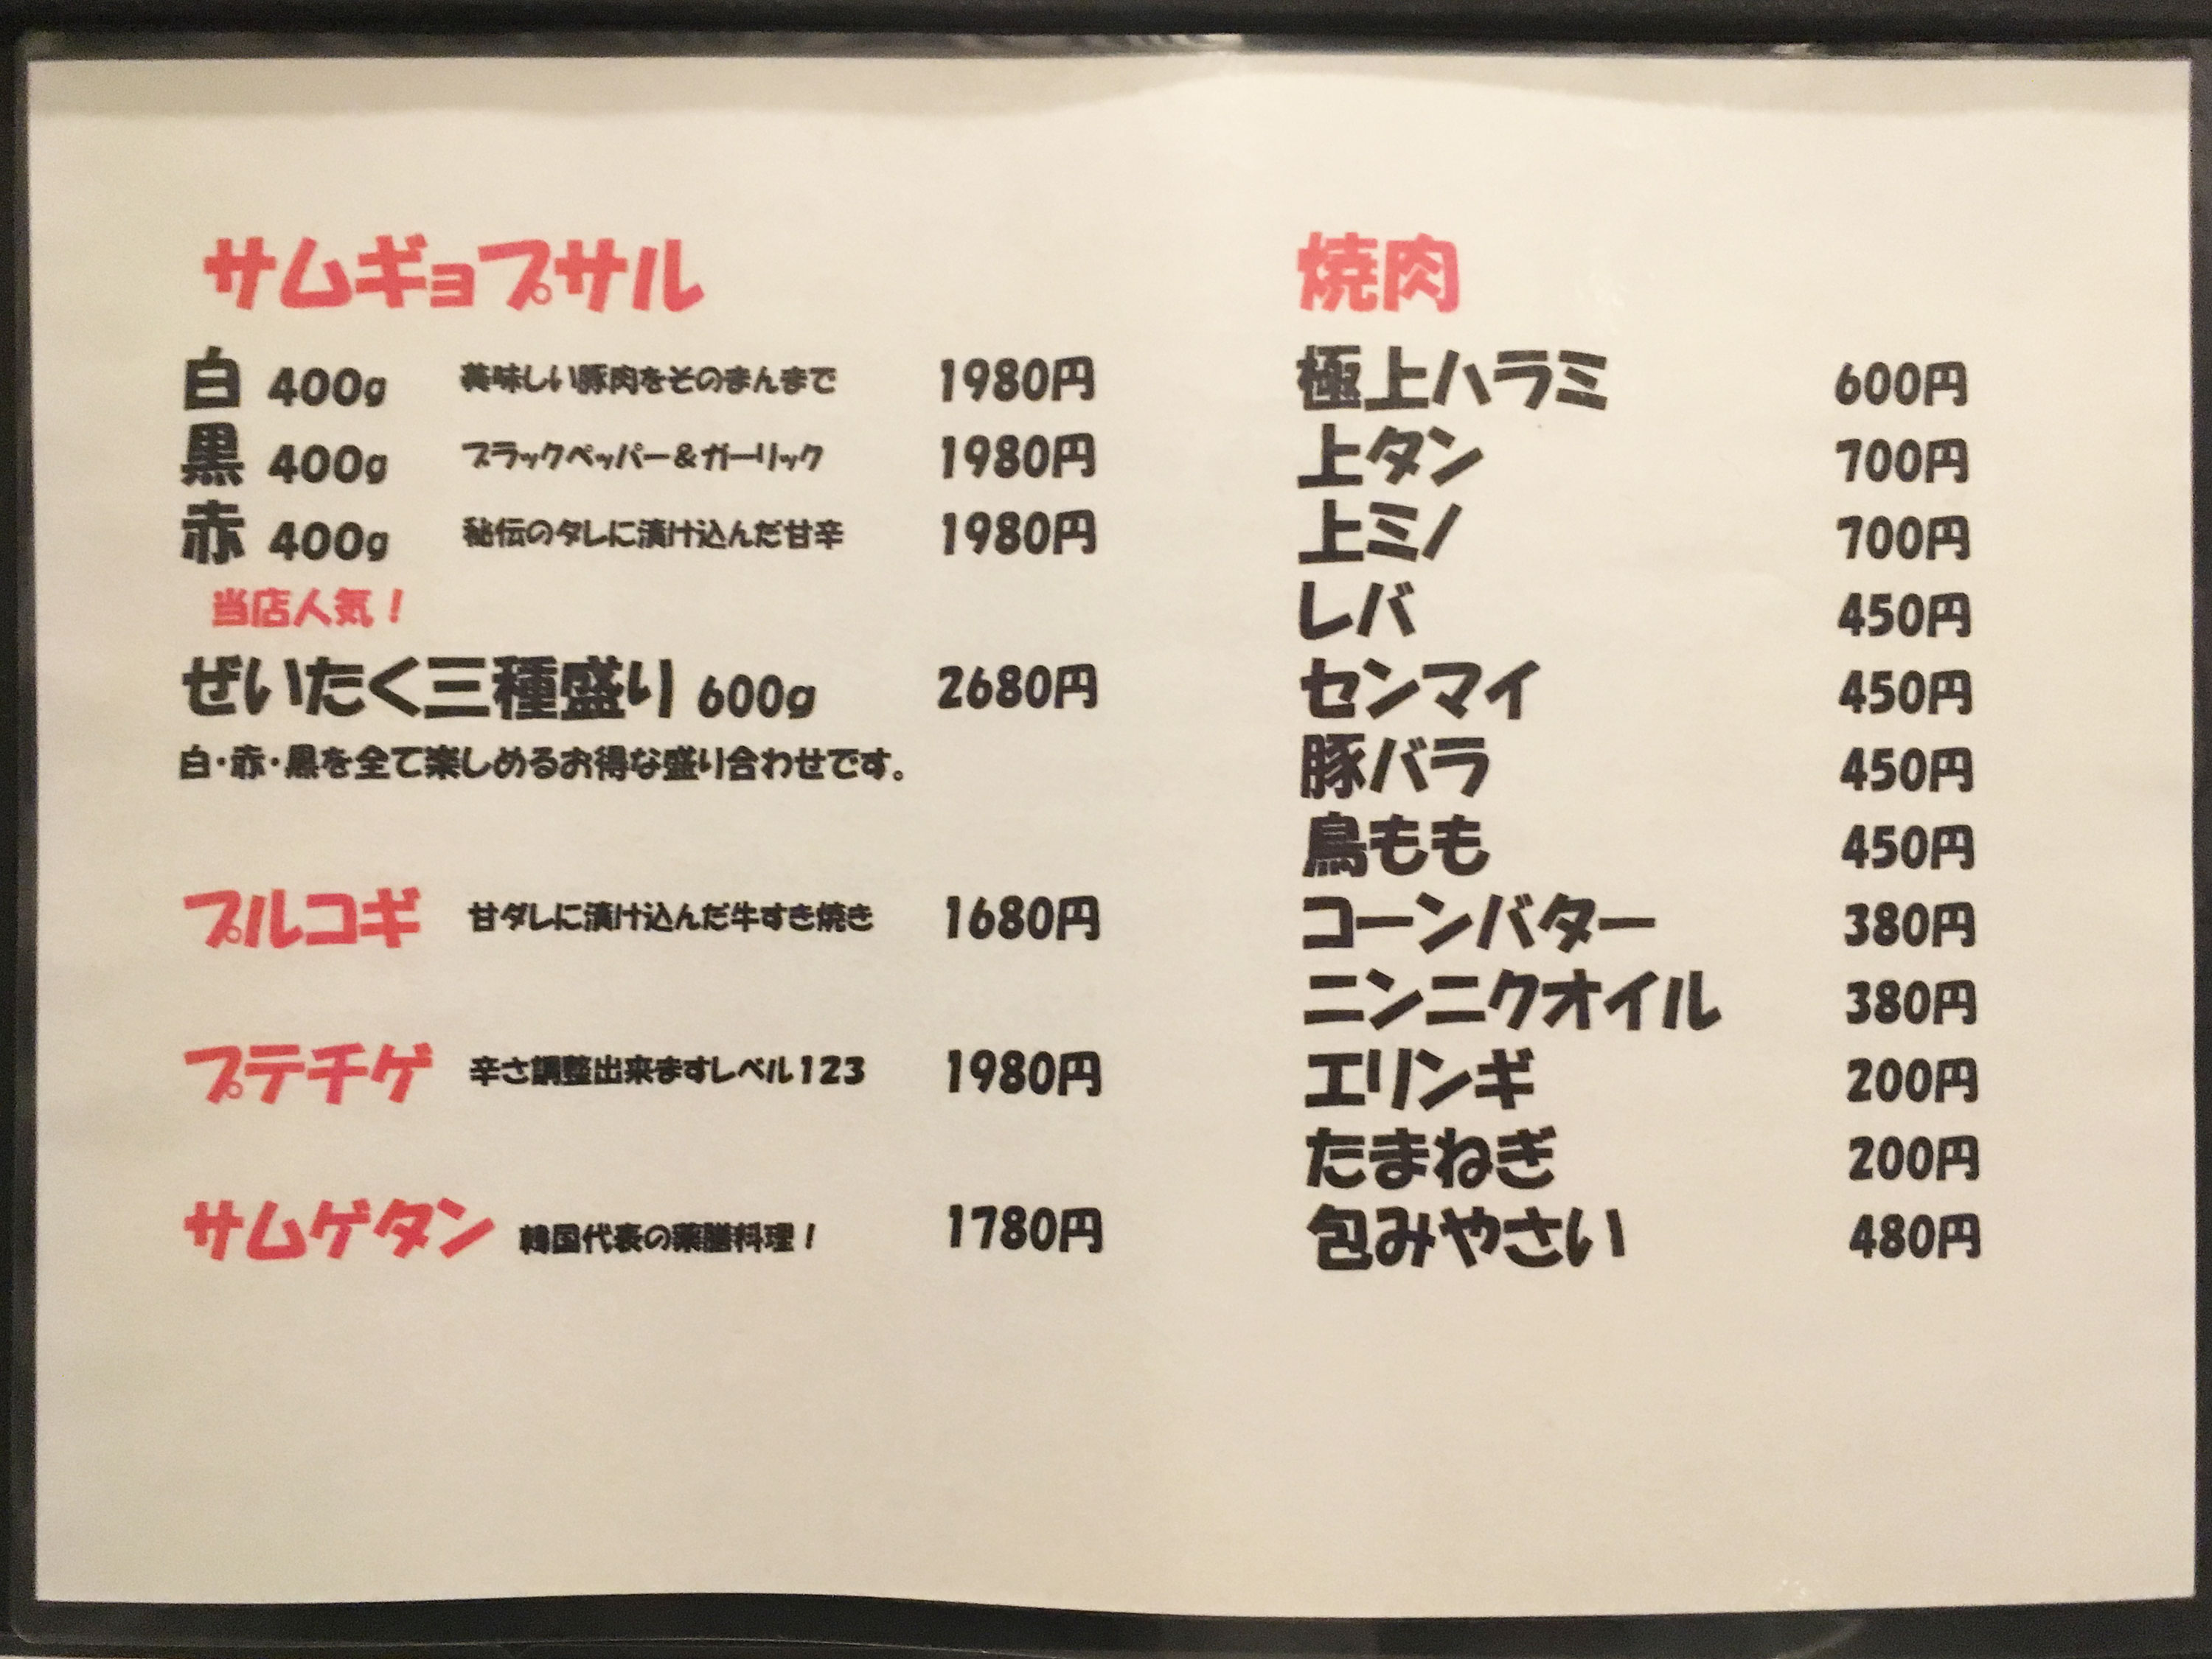 サムギョプサル
白 400g 美味しい豚肉をそのまんまで 1980円
黒 400g ブラックペッパー＆ガーリック 1980円
赤 400g 秘伝のタレに漬け込んだ甘辛 1980円
当店人気！
ぜいたく三種盛り 600g 2680円
白・赤・黒を全て楽しめるお得な盛り合わせです。
プルコギ 甘ダレに漬け込んだ牛すき焼き 1680円
プテチゲ 辛さ調整出来ますレベル123 1980円
サムゲタン 韓国代表の薬膳料理！ 1780円
焼肉
極上ハラミ 600円
上タン 700円
上ミノ 700円
レバ 450円
センマイ 450円
豚バラ 450円
鳥もも 450円
コーンバター 380円
ニンニクオイル 380円
エリンギ 200円
たまねぎ 200円
包みやさい 480円